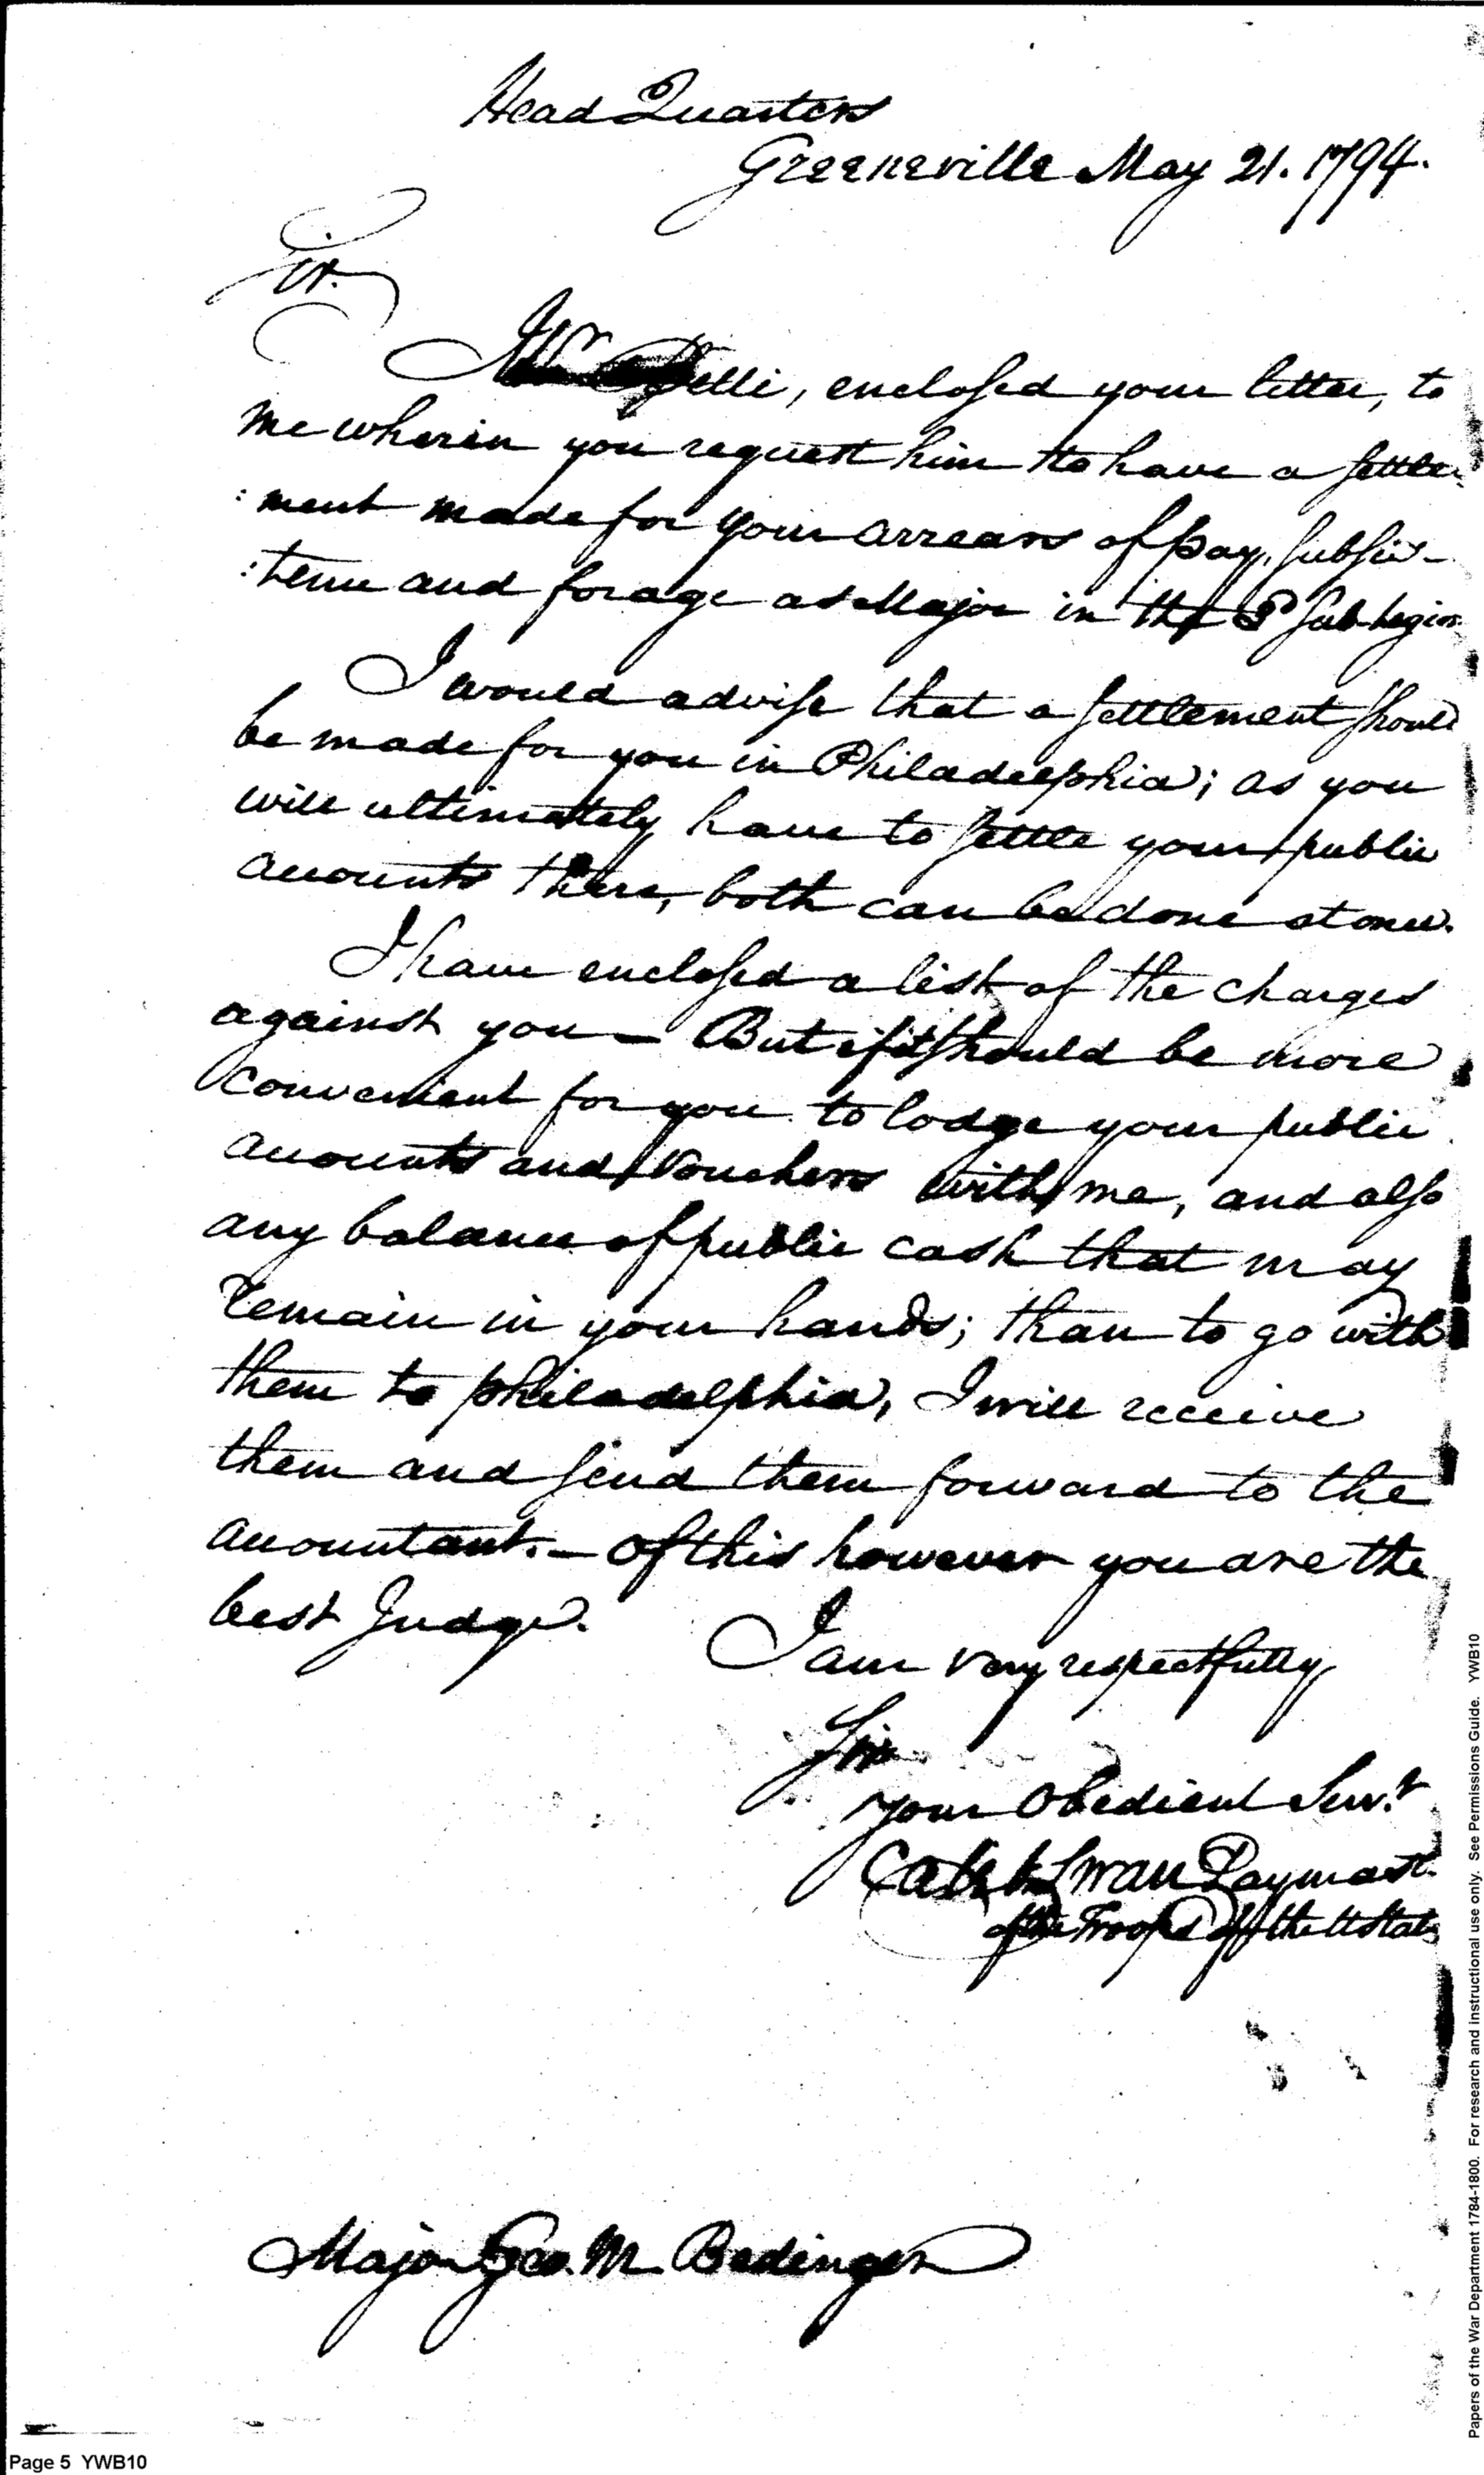 Head Quarters
Greeneville May 21. 1794.
Sir.
Mr Belli, encloſed your letter, to
me wherein you request him to have a ſettle-
:ment made for your arrears of pay, ſubſis-
:tence and forage as Major in the Sub-legion
I would adviſe that a ſettlement ſhould
be made for you in Philadelphia; as you
will ultimately have to ſettle your public
accounts there, both can be done at once.
I have encloſed a list of the charges
against you – But if it ſhould be more
convenient for you to lodge your public
accounts and Vouchers with me, and alſo
any balance of public cash that may
remain in your hands; than to go with
them to philadelphia, I will receive
them and ſend them forward to the
accountant. – Of this however you are the
best Judge.
I am very respectfully
Sir
your Obedient Serv.t
Caleb Swan Paymast.
of the Troops of the UStates
Major Geo. M Bedinger
Page 5 YWB10
Papers of the War Department 1784-1800. For research and instructional use only. See Permissions Guide. YWB10